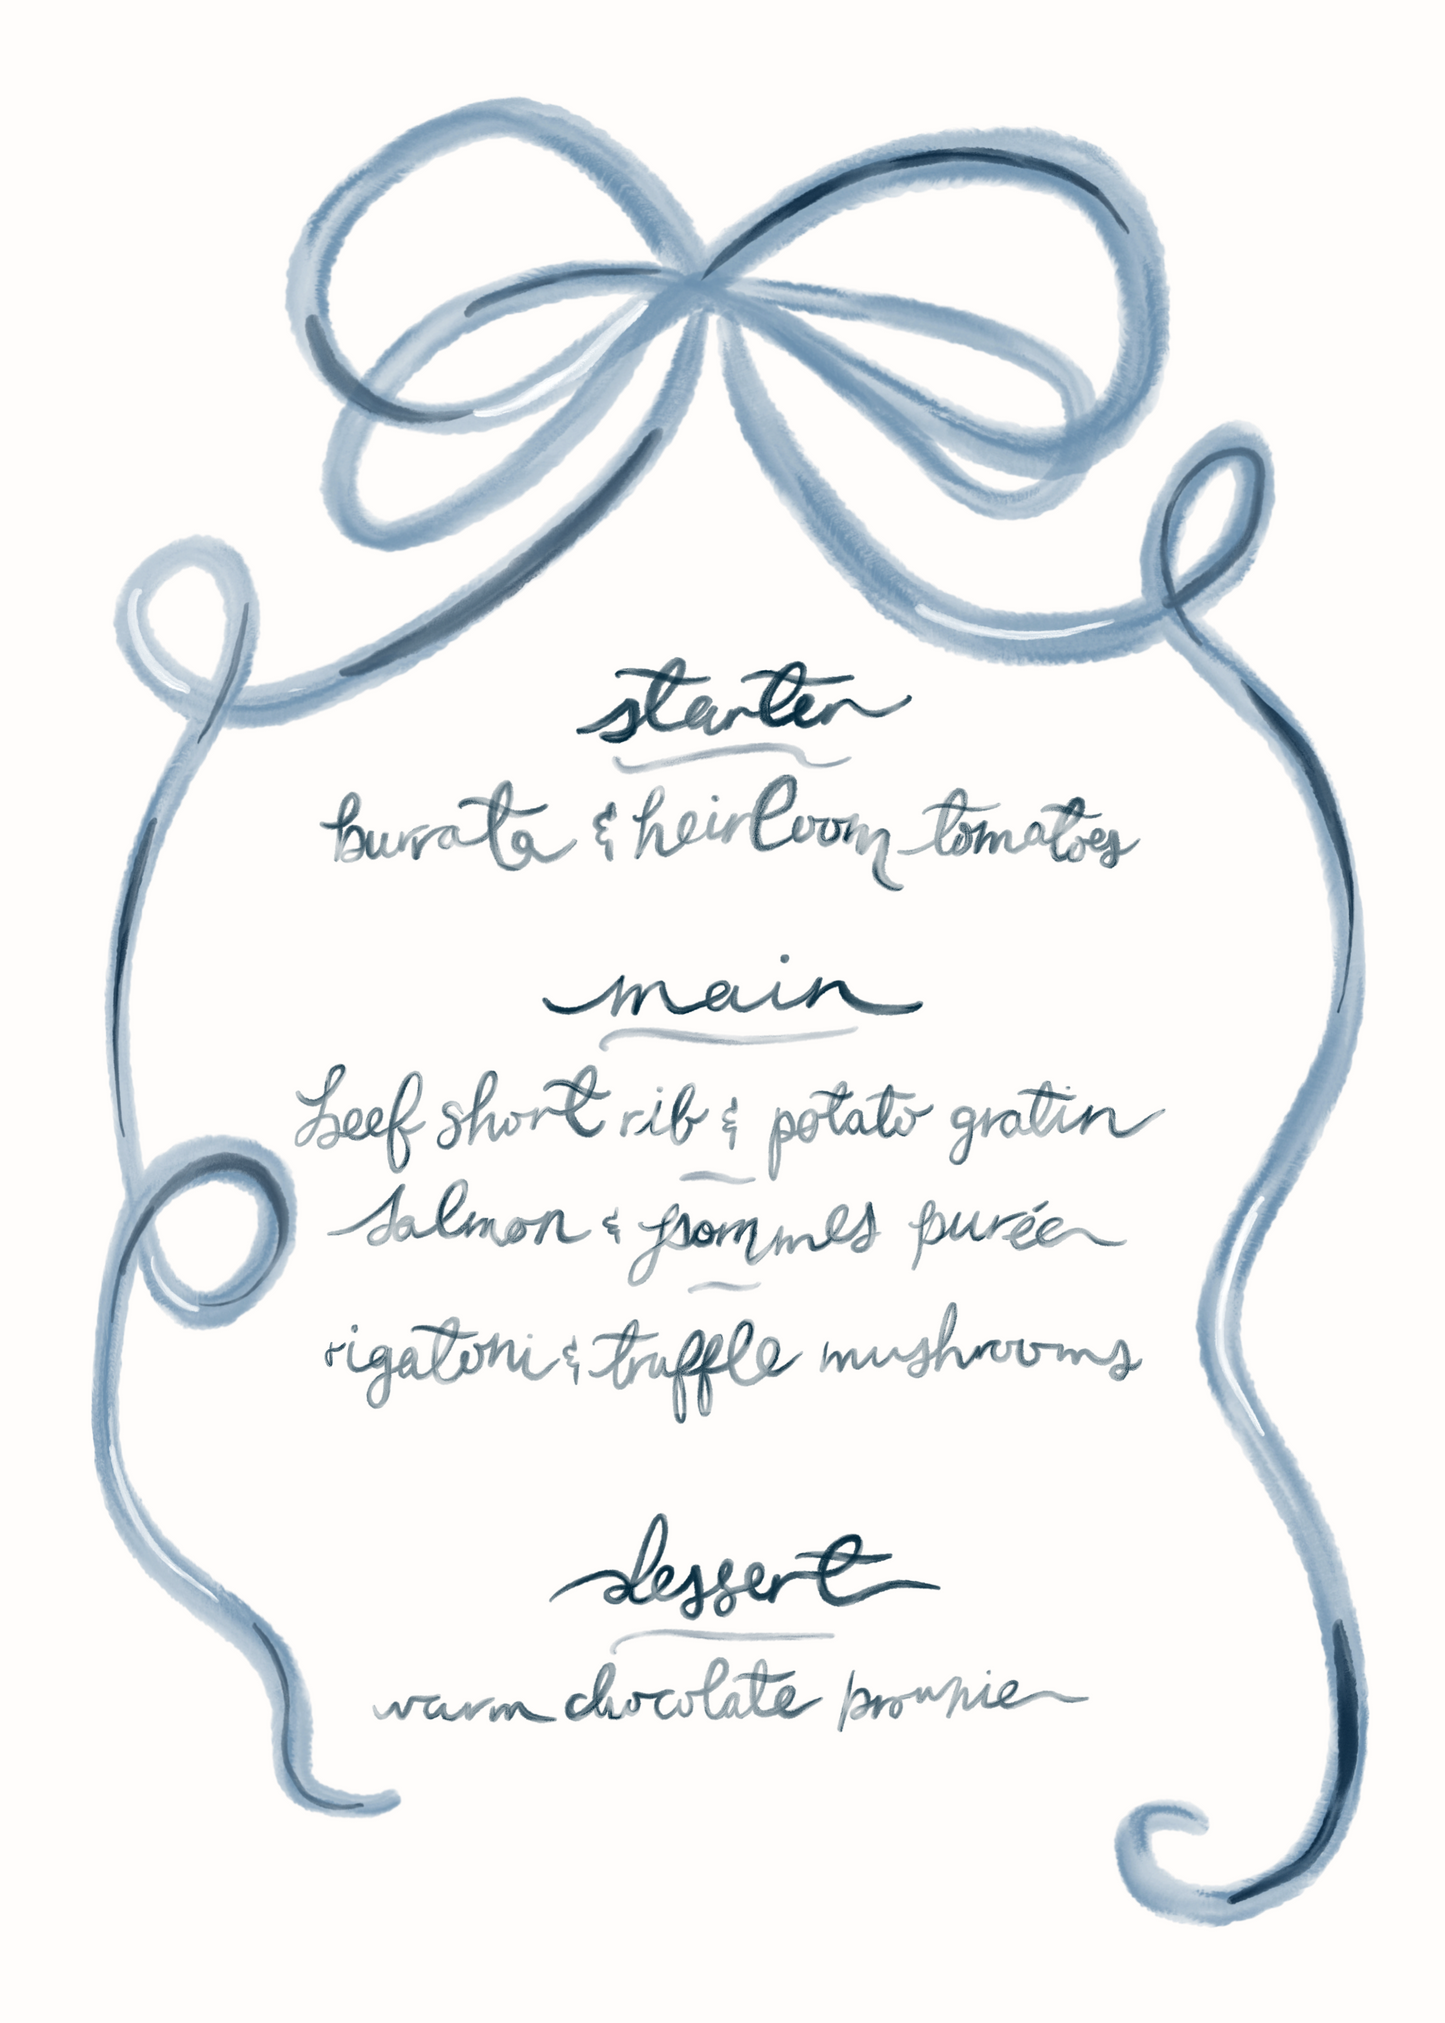 starter
burrata & heirloom tomatoes
main
beef short rib & potato gratin
salmon & pommes purée
rigatoni & truffle mushrooms
dessert
warm chocolate